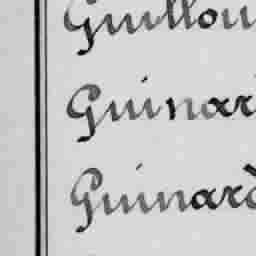 Guillou
Guinar
Guinard